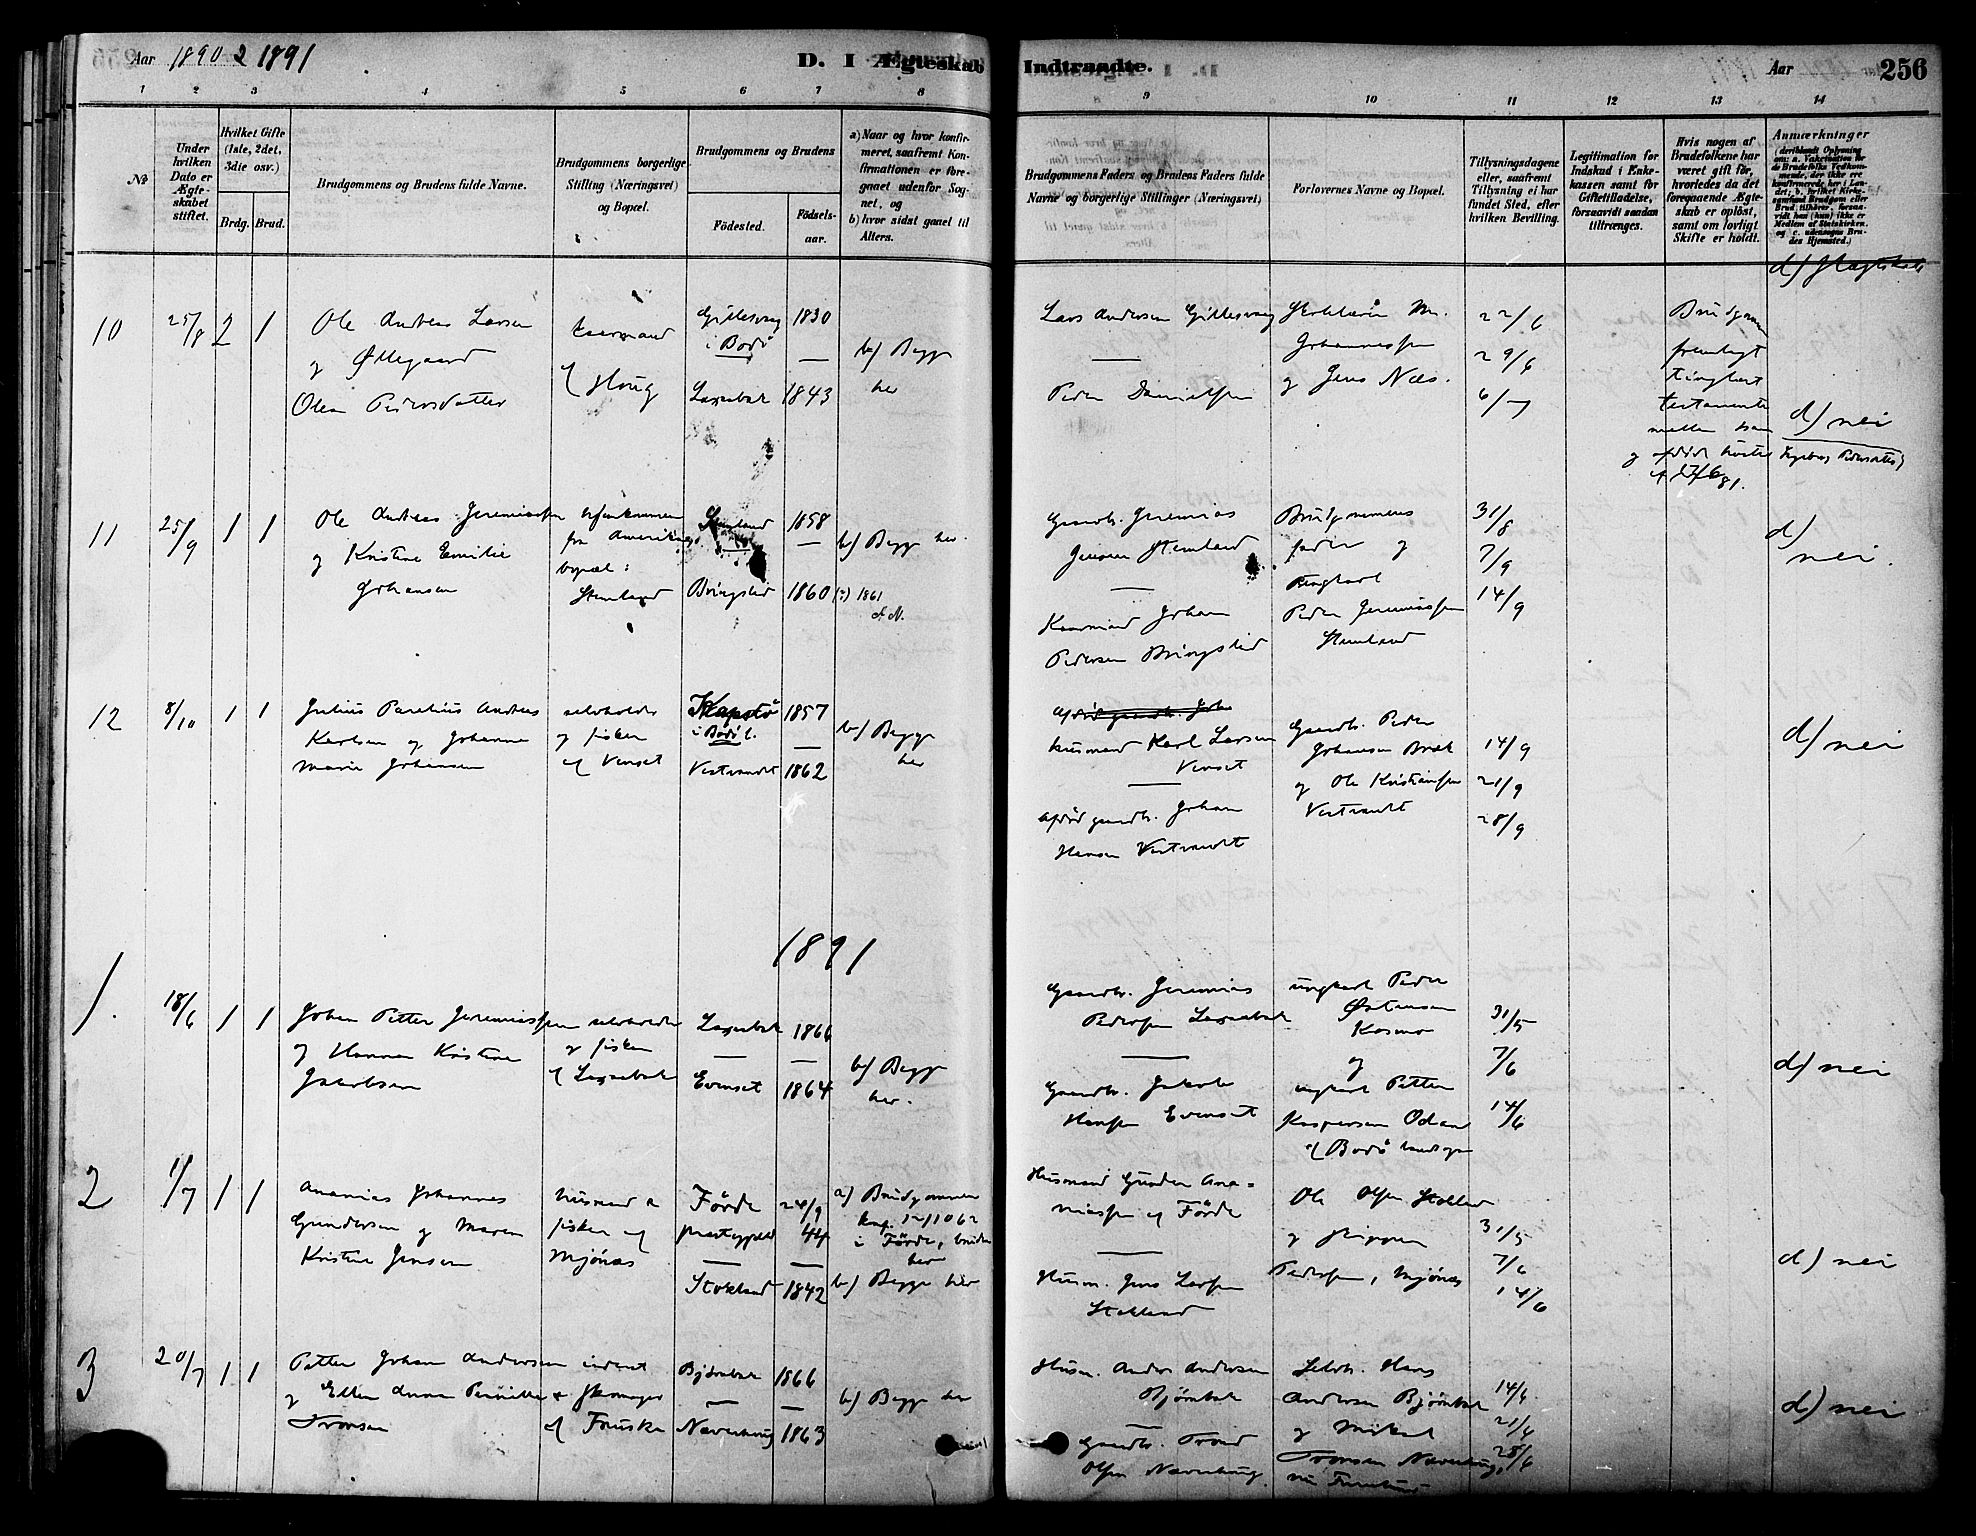 Aar 1890 2 1891
D. I Ægteskab Indtraadte.
Aar 256
1 2 3 4 5 6 7 8 9 10 11 12 13 14
№
Under hvilken Dato er Ægteskabet stiftet.
Hvilket Gifte (1ste, 2det, 3die osv.)
Brdg. Brud.
Brudgommens og Brudens fulde Navne.
Brudgommens borgerlige Stilling (Næringsvei) og Bopæl.
Brudgommens og Brudens
Fødested.
Fødselsaar.
a) Naar og hvor konfirmeret, saafremt Konfirmationen er foregaaet udenfor Sognet, og
b) hvor sidst gaaet til Alters.
Brudgommens Faders og Brudens Faders fulde Navne og borgerlige Stillinger (Næringsvei)
Forlovernes Navne og Bopæl.
Tillysningsdagene eller, saafremt Tillysning ei har fundet Sted, efter hvilken Bevilling.
Legitimation for Indskud i Enkekassen samt for Giftetilladelse, forsaavidt saadan tiltrænges.
Hvis nogen af Brudefolkene har været gift før, hvorledes da det foregaaende Ægteskab er opløst, samt om lovligt Skifte er holdt.
Anmærkninger
(deriblandt Oplysning om: a. Vakcination for de Brudefolks Vedkommende, der ikke ere konfirmerede her i Landet; b. hvilket Kirkesamfund Brudgom eller Brud tilhører, forsaavidt han (hun) ikke er Medlem af Statskirken, og c. udensogns Brudes Hjemsted.)
10
25/8 2 1
Ole Andreas Larsen
og Øllegaard
Olea Pedersdatter
kaarmand
af Houg
Gillesvag
i Bodø
—
Laxabak
1830
—
1843
b) Begge
her
Lars Andersen Gillesvag
—
Peder Danielsen
Johannessen
og Jens Næs.
22/6
29/6
6/7
Brudgommen
fremlagt
tinglæst
testamente
mellem ham
og afdød hustru
d) nei
11
25/9 1 1
Ole Andreas Jeremiassen
og Kristine Emilie
Johansen
fra Amerika,
bopæl:
Stemland
Stemland
—
Bringslid
1858
—
1860 (?) 1861
b) Begge her.
Gaardb. Jeremias
Jensen Stemland
—
Kaarmand Johan
Pedersen Bringslid
Brudgommens
fader og
Ungkarl
Peder Jeremiassen
Stemland
31/8
7/9
14/9
d)
nei.
12
8/10 1 1
Julius Parelius Andreas
Karlsen og Johanne
Marie Johansen
selveholder
og fisker
af Venset
Klapstø
i Bodø l.
—
Vestvandet
1857
—
1862
b) Begge
her
husmand Karl Larsen
Venset
—
Afdød gaardb. Johan
Hansen Vestvandet
Gaardb. Peder
Johansen Bræk
og Ole Kristiansen
Vestvandet
14/9
21/9
28/9
d) nei
1891
1.
18/6 1 1
Johan Petter Jeremiassen
og Hanna Kristine
Jakobsen
selveholder
og fisker
af Laxabak
Laxabak
—
Evenset
1866
—
1864
b) Begge
her.
Gaardb. Jeremias
Pedersen Laxabak
—
Gaardb. Jakob
Hansen Evenset
ungkarl Peder
Østensen
Kosmo
og
ungkarl Petter
Kaspersen Odan
af Bodø landsogn
31/5
7/6
14/6
d) nei
2
1/7 1 1
Ananias Johannes
Gundersen og Maren
Kristine Jensen
husmand &
fisker af
Mjønæs
Førde
præstegjeld
—
Stokland
24/9
44
—
1842
a) Brudgommen
konf. 12/10 62
i Førde, bruden
her
b) Begge her
Husmand Gunder Ana-
niassen af Førde
—
Husm. Jens Larsen
Stokland
Ole Olsen Stokland
og
Pedersen, Mjønæs
31/5
7/6
14/6
d) nei
3
20/7 1 1
Petter Johan Andersen
og Ellen Anna Pernille
Tronsen
inderst
& skomager
af Fauske
Bjørnbak
—
Naverhaug
1866
—
1863
b) Begge her
Husm. Anders Andersen
Bjørnbak
—
Gaardb. Trond
Olsen Naverhaug.
Selvb. Hans
Andersen Bjørnbak
og Mikal
Tronsen Naverhaug,
14/6
21/6
28/6
d) nei